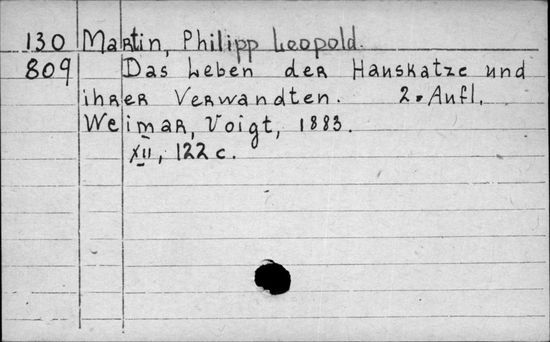 130 Martin, Philipp Leopold.
809 Das Leben der Hauskatze und
ihrer Verwandten. 2. Aufl.
Weimar, Voigt, 1883.
XII, 122 c.